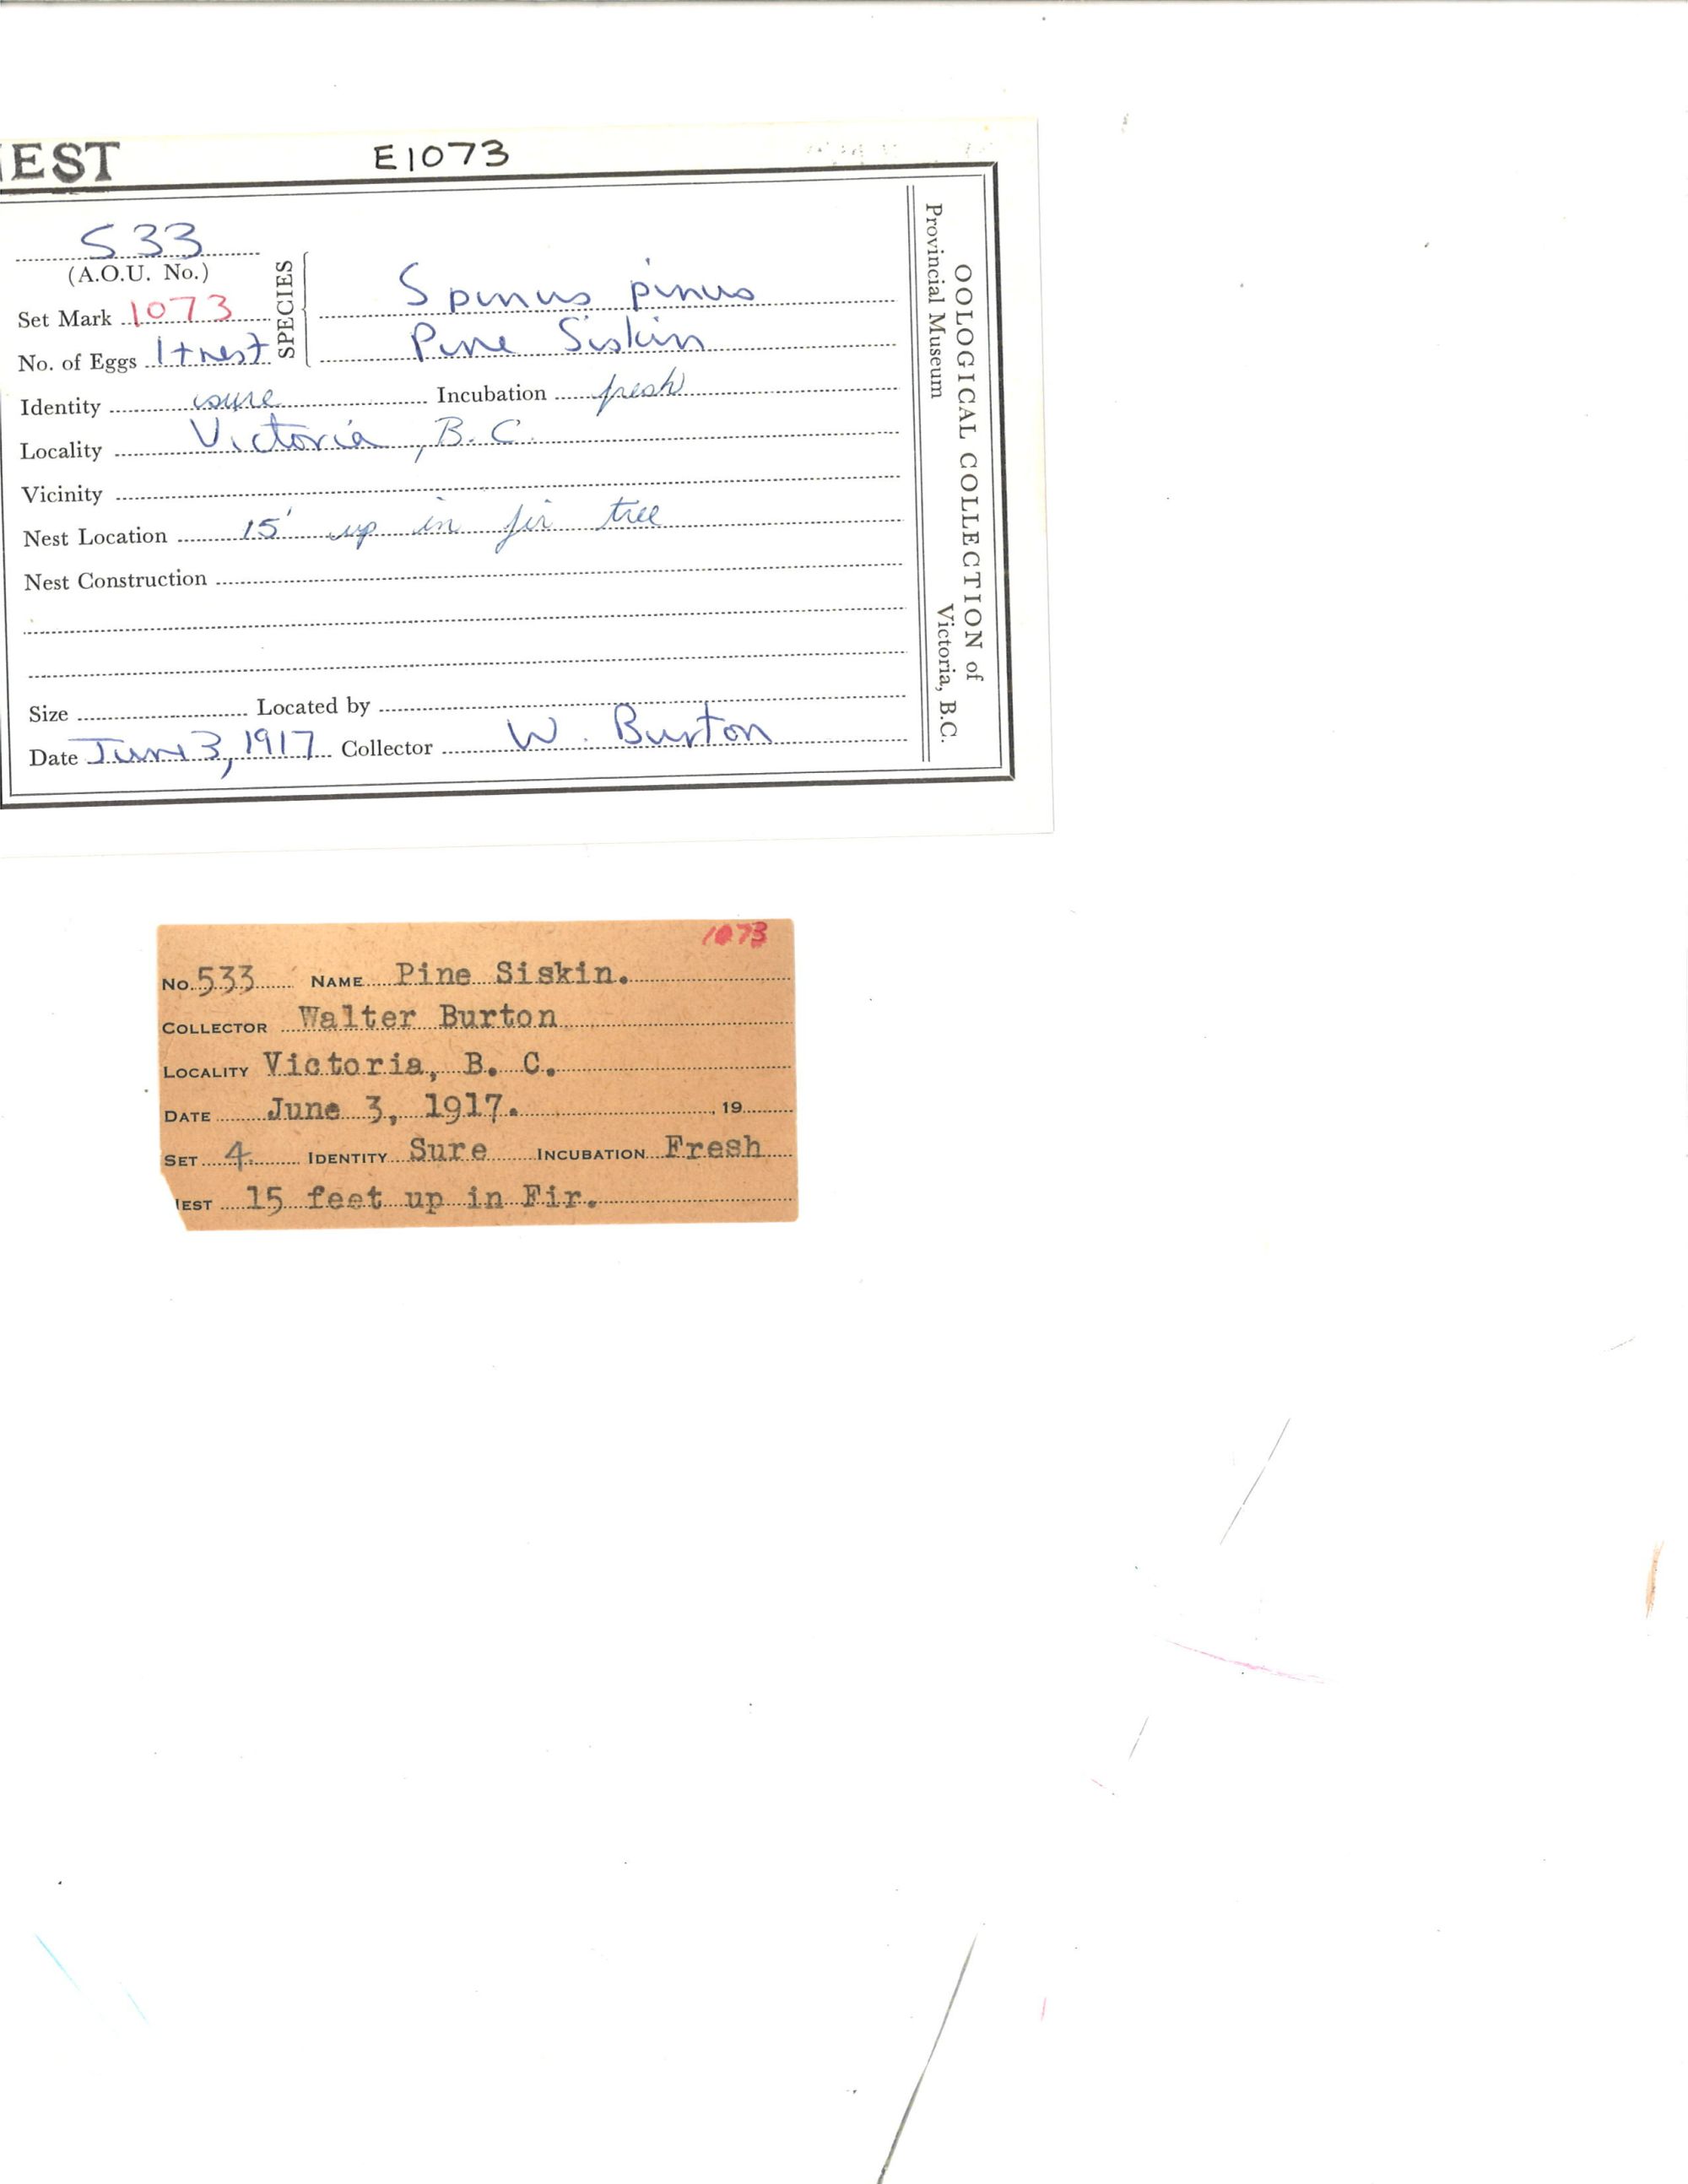 EST E1073
533
(A.O.U. No.)
Set Mark 1073
No. of Eggs 1+nest
SPECIES
Spinus pinus
Pine Siskin
Identity sure Incubation fresh
Locality Victoria, B.C.
Vicinity
Nest Location 15' up in fir tree
Nest Construction
Size Located by
Date June 3, 1917 Collector W. Burton
OOLOGICAL COLLECTION of
Provincial Museum Victoria, B.C.
1073
No. 533 NAME Pine Siskin.
COLLECTOR Walter Burton
LOCALITY Victoria, B. C.
DATE June 3, 1917. , 19
SET 4 IDENTITY Sure INCUBATION Fresh
EST 15 feet up in Fir.